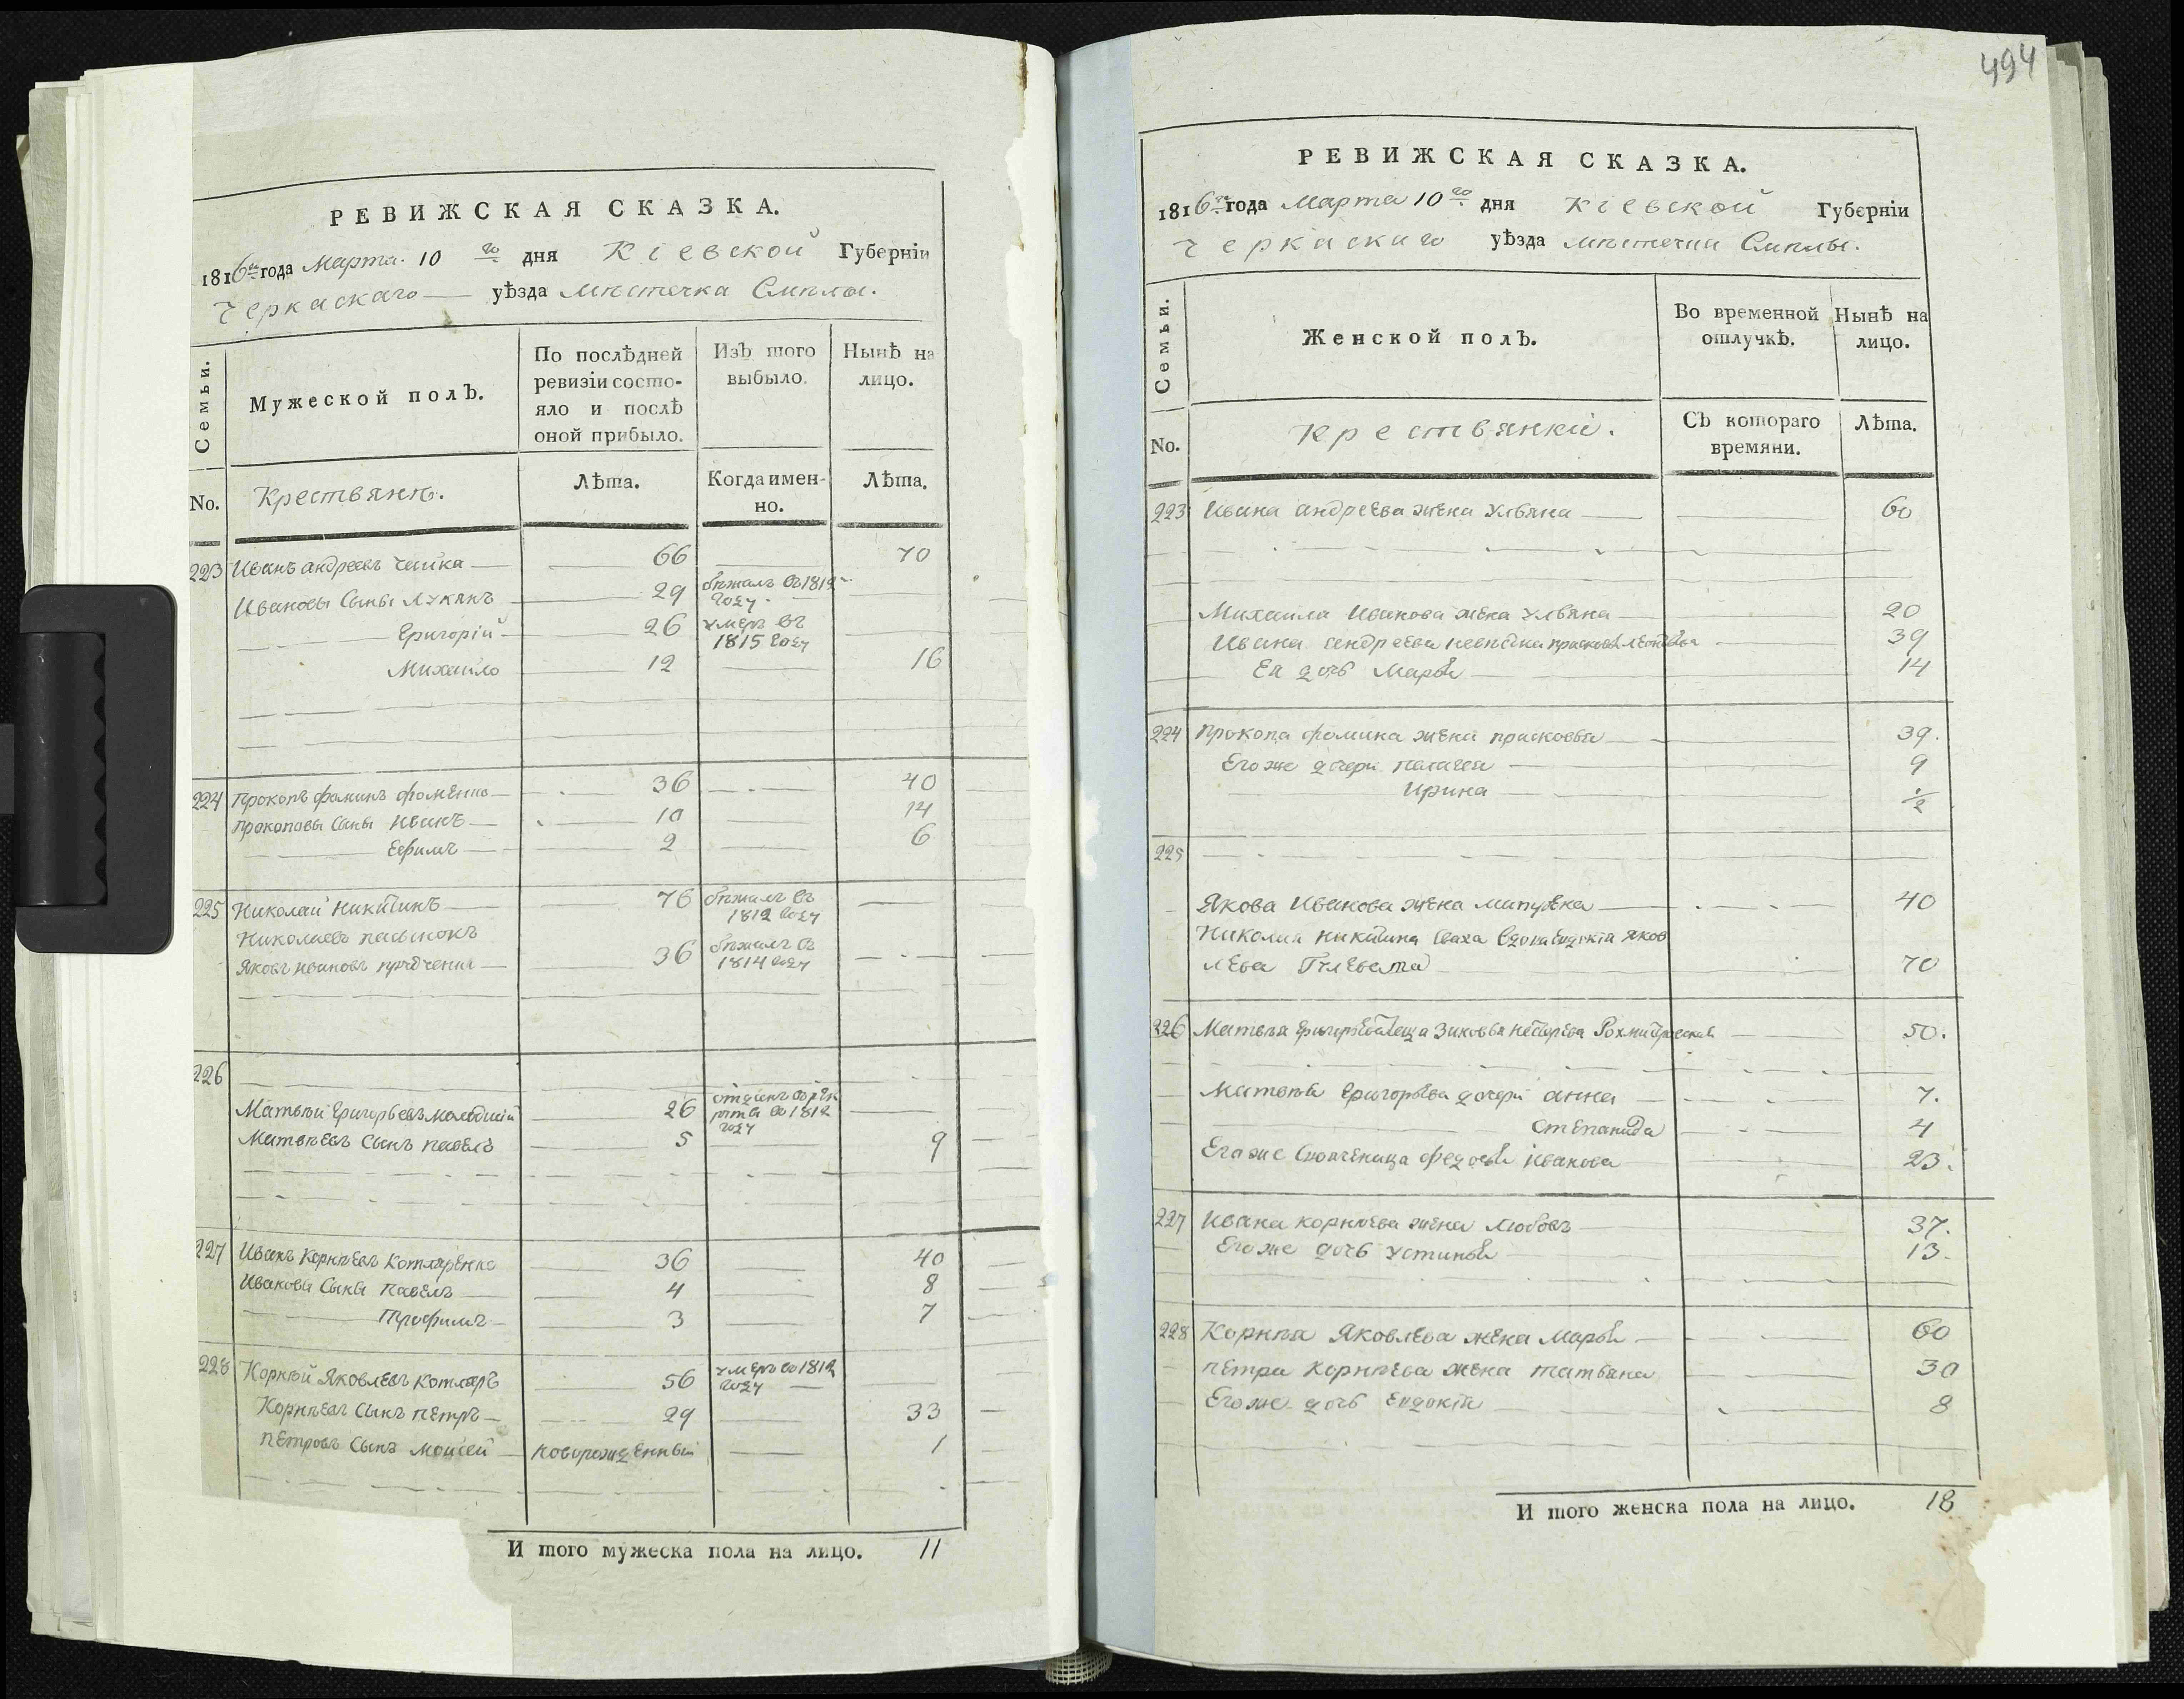 РЕВИЖСКАЯ СКАЗКА.
1816го года Марта 10 го дня Кіевской Губерніи
Черкаскаго уѣзда мѣстечка Смѣлы.
Семьи.
Мужеской полъ.
По послѣдней ревизіи состояло и послѣ оной прибыло.
Изъ того выбыло.
Нынѣ на лицо.
No.
Крестьянъ.
Лѣта.
Когда именно.
Лѣта.
223 Иванъ андреевъ чайка 66 70
Ивановы Сыны Лукянъ 29 бѣжалъ въ 1812 году
Григорій 26 умеръ въ 1815 году
Михайло 12 16
224 Прокопъ фоминъ фоменко 36 40
Прокоповы Сыны Иванъ 10 14
Ефимъ 2 6
225 Николай Никитинъ 76 бѣжалъ въ 1812 году
Николаевъ пасынокъ
Яковъ Ивановъ 36 бѣжалъ въ 1814 году
226
Матвѣй Григорьевъ 26 отданъ въ рекруты въ 1812 году
Матвѣевъ Сынъ Павелъ 5 9
227 Иванъ Корнѣевъ Котляренко 36 40
Ивановы Сыны Павелъ 4 8
Трофимъ 3 7
228 Корнѣй Яковлевъ Котляръ 56 умеръ въ 1812 году
Корнѣевъ Сынъ Петръ 29 33
Петровъ Сынъ Моисей новорожденный 1
И того мужеска пола на лицо. 11
494
РЕВИЖСКАЯ СКАЗКА.
1816го года Марта 10го дня Кіевской Губерніи
Черкаскаго уѣзда мѣстечка Смѣлы.
Семьи.
Женской полъ.
Во временной отлучкѣ.
Нынѣ на лицо.
No.
Крестьянки.
Съ котораго времяни.
Лѣта.
223 Ивана андреева жена Ульяна 60
Михайла Иванова жена Ульяна 20
Ивана андреева невѣстка 39
Ея дочь Марья 14
224 Прокопа фомина жена прасковья 39.
Его же дочери пелагея 9
Ирина ½
225
Якова Иванова жена 40
Николая Никитина сваха вдова Евдокія Яков
лева 70
226 Матвѣя Григорьева теща Зиновья 50.
Матвѣя Григорьева дочери анна 7.
Степанида 4
Его же Своячница федосья Иванова 23.
227 Ивана корнѣева жена Любовъ 37.
Его же дочь Устинья 13.
228 Корнѣя Яковлева жена Марья 60
Петра Корнѣева жена татьяна 30
Его же дочь Евдокія 8
И того женска пола на лицо. 18